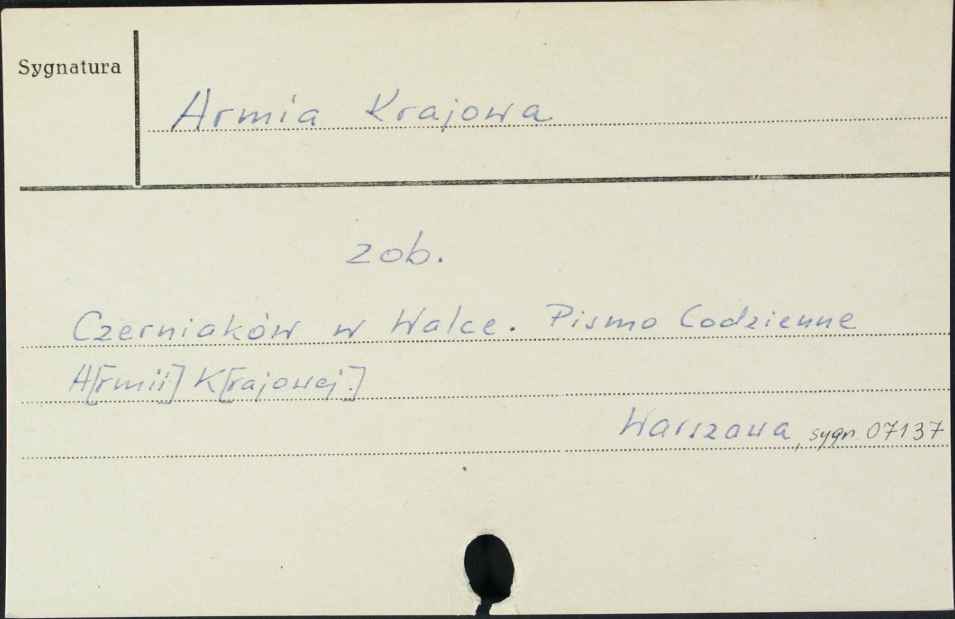 Sygnatura
Armia Krajowa
zob.
Czerniaków w Walce. Pismo Codzienne
A[rmii] K[rajowej.]
Warszawa, sygn. 07137